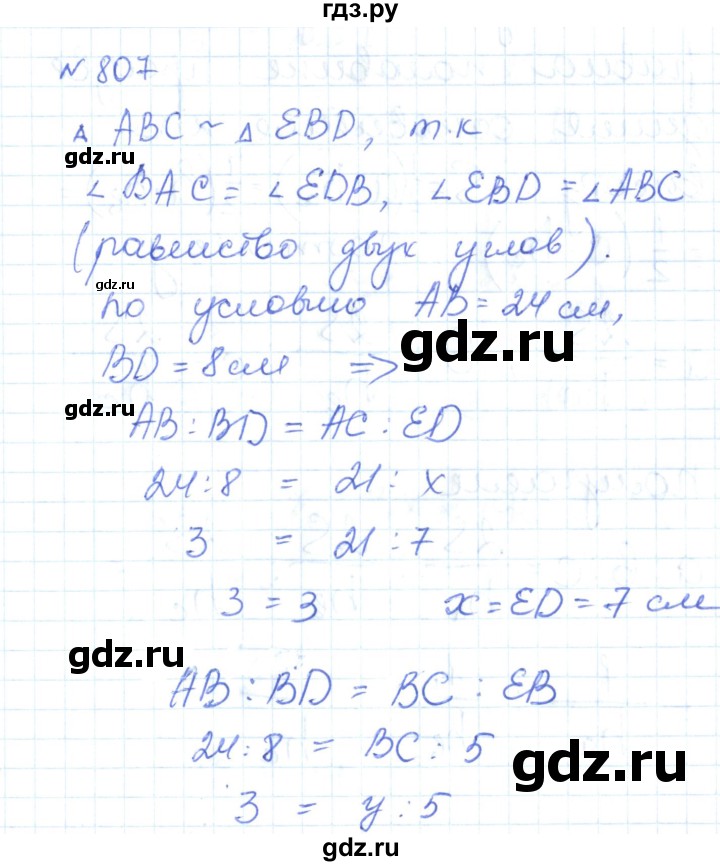 гдз.ру
№ 807
△ ABC ~ △ EBD, т.к
∠BAC = ∠EDB, ∠EBD = ∠ABC
gdz.ru
(равенство двух углов).
gdz.ru
по условию AB = 24 см,
gdz.ru
BD = 8 см =>
gdz.ru
AB : BD = AC : ED
24 : 8 = 21 : x
3 = 21 : 7
3 = 3 x = ED = 7 см
gdz.ru
AB : BD = BC : EB
24 : 8 = BC : 5
gdz.ru
3 = y : 5
gdz.ru